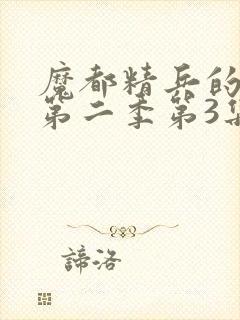 魔都精兵的
第二季第3集
諦洛